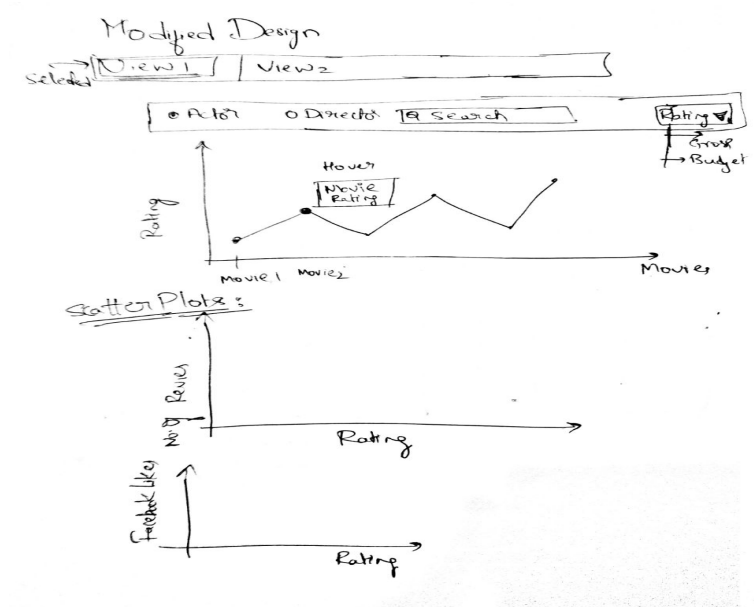 Modified Design
Selected View 1 View 2
Actor Director Search Rating
Gross
Budget
Hover
Movie
Rating
Rating
Movie 1 Movie 2 Movies
Scatter Plots:
No. of Revies
Rating
Facebook Likes
Rating